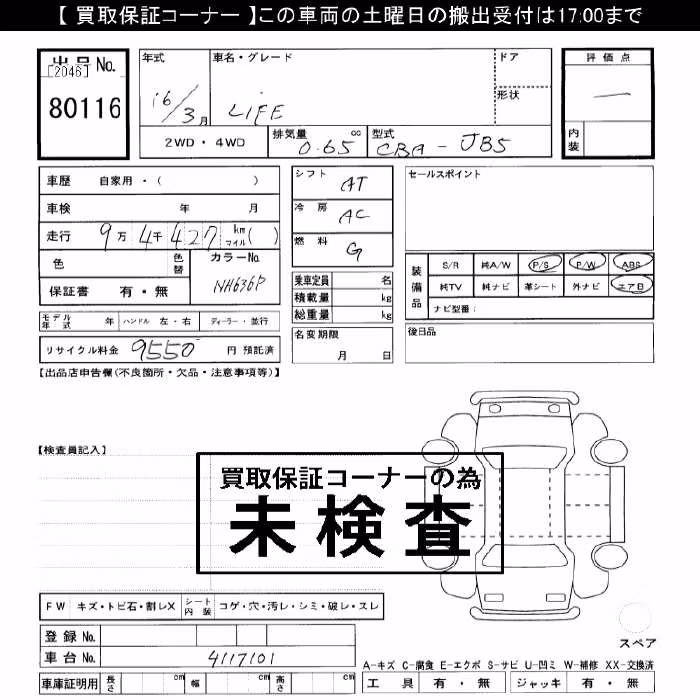 【 買取保証コーナー 】この車両の土曜日の搬出受付は17:00まで
出品No.
[2046]
80116
年式
16/3月
車名・グレード
LIFE
ドア
形状
評価点
一
内装
2WD・4WD
排気量 0.65 cc
型式 CBA - JB5
車歴 自家用・( )
車検 年 月
走行 9万4千427 km マイル( )
色 色替 カラーNo. NH636P
保証書 有・無
モデル年式 年 ハンドル 左・右 ディーラー・並行
リサイクル料金 9550 円 預託済
シフト AT
冷房 AC
燃料 G
乗車定員 名
積載量 kg
総重量 kg
名変期限
月 日
セールスポイント
装備品
S/R 純A/W P/S P/W ABS
純TV 純ナビ 革シート 外ナビ エアB
ナビ型番:
後日品
【出品店申告欄(不良箇所・欠品・注意事項等)】
【検査員記入】
買取保証コーナーの為
未検査
FW キズ・トビ石・割レX シート内装 コゲ・穴・汚レ・シミ・破レ・スレ
登録 No.
車台 No. 4117101
車庫証明用 長さ cm 幅 cm 高さ cm
スペア
A-キズ C-腐食 E-エクボ S-サビ U-凹ミ W-補修 XX-交換済
工具 有・無 ジャッキ 有・無